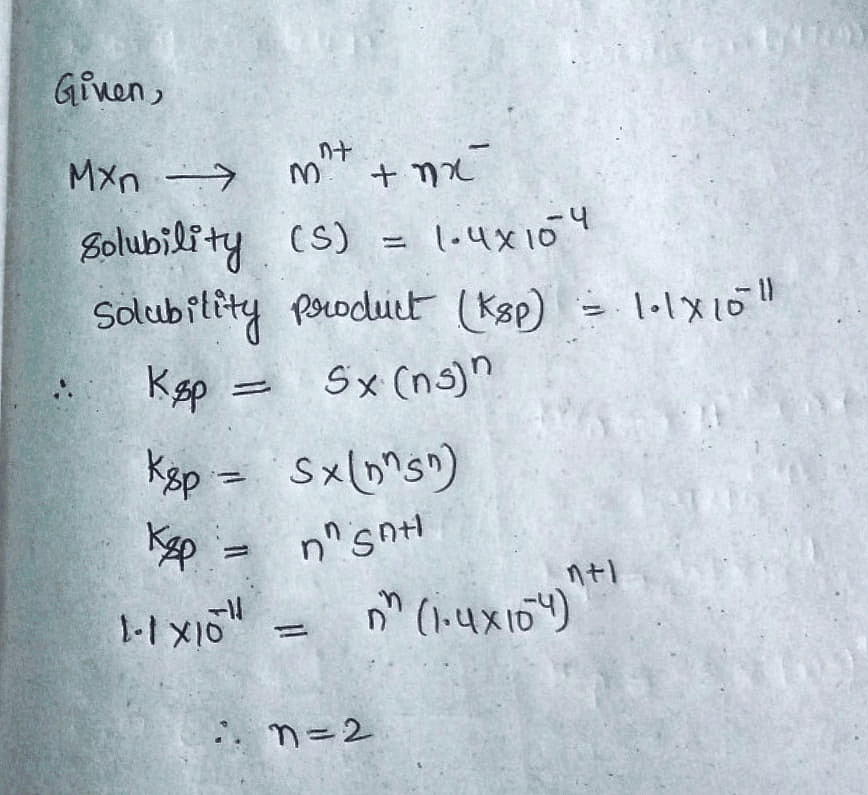 Given,
MXn → m^n+ + nx^-
Solubility (S) = 1.4x10^-4
Solubility product (Ksp) = 1.1x10^-11
∴ Ksp = S x (ns)^n
Ksp = S x (n^n s^n)
Ksp = n^n s^n+1
1.1 x10^-11 = n^n (1.4x10^-4)^n+1
∴ n=2